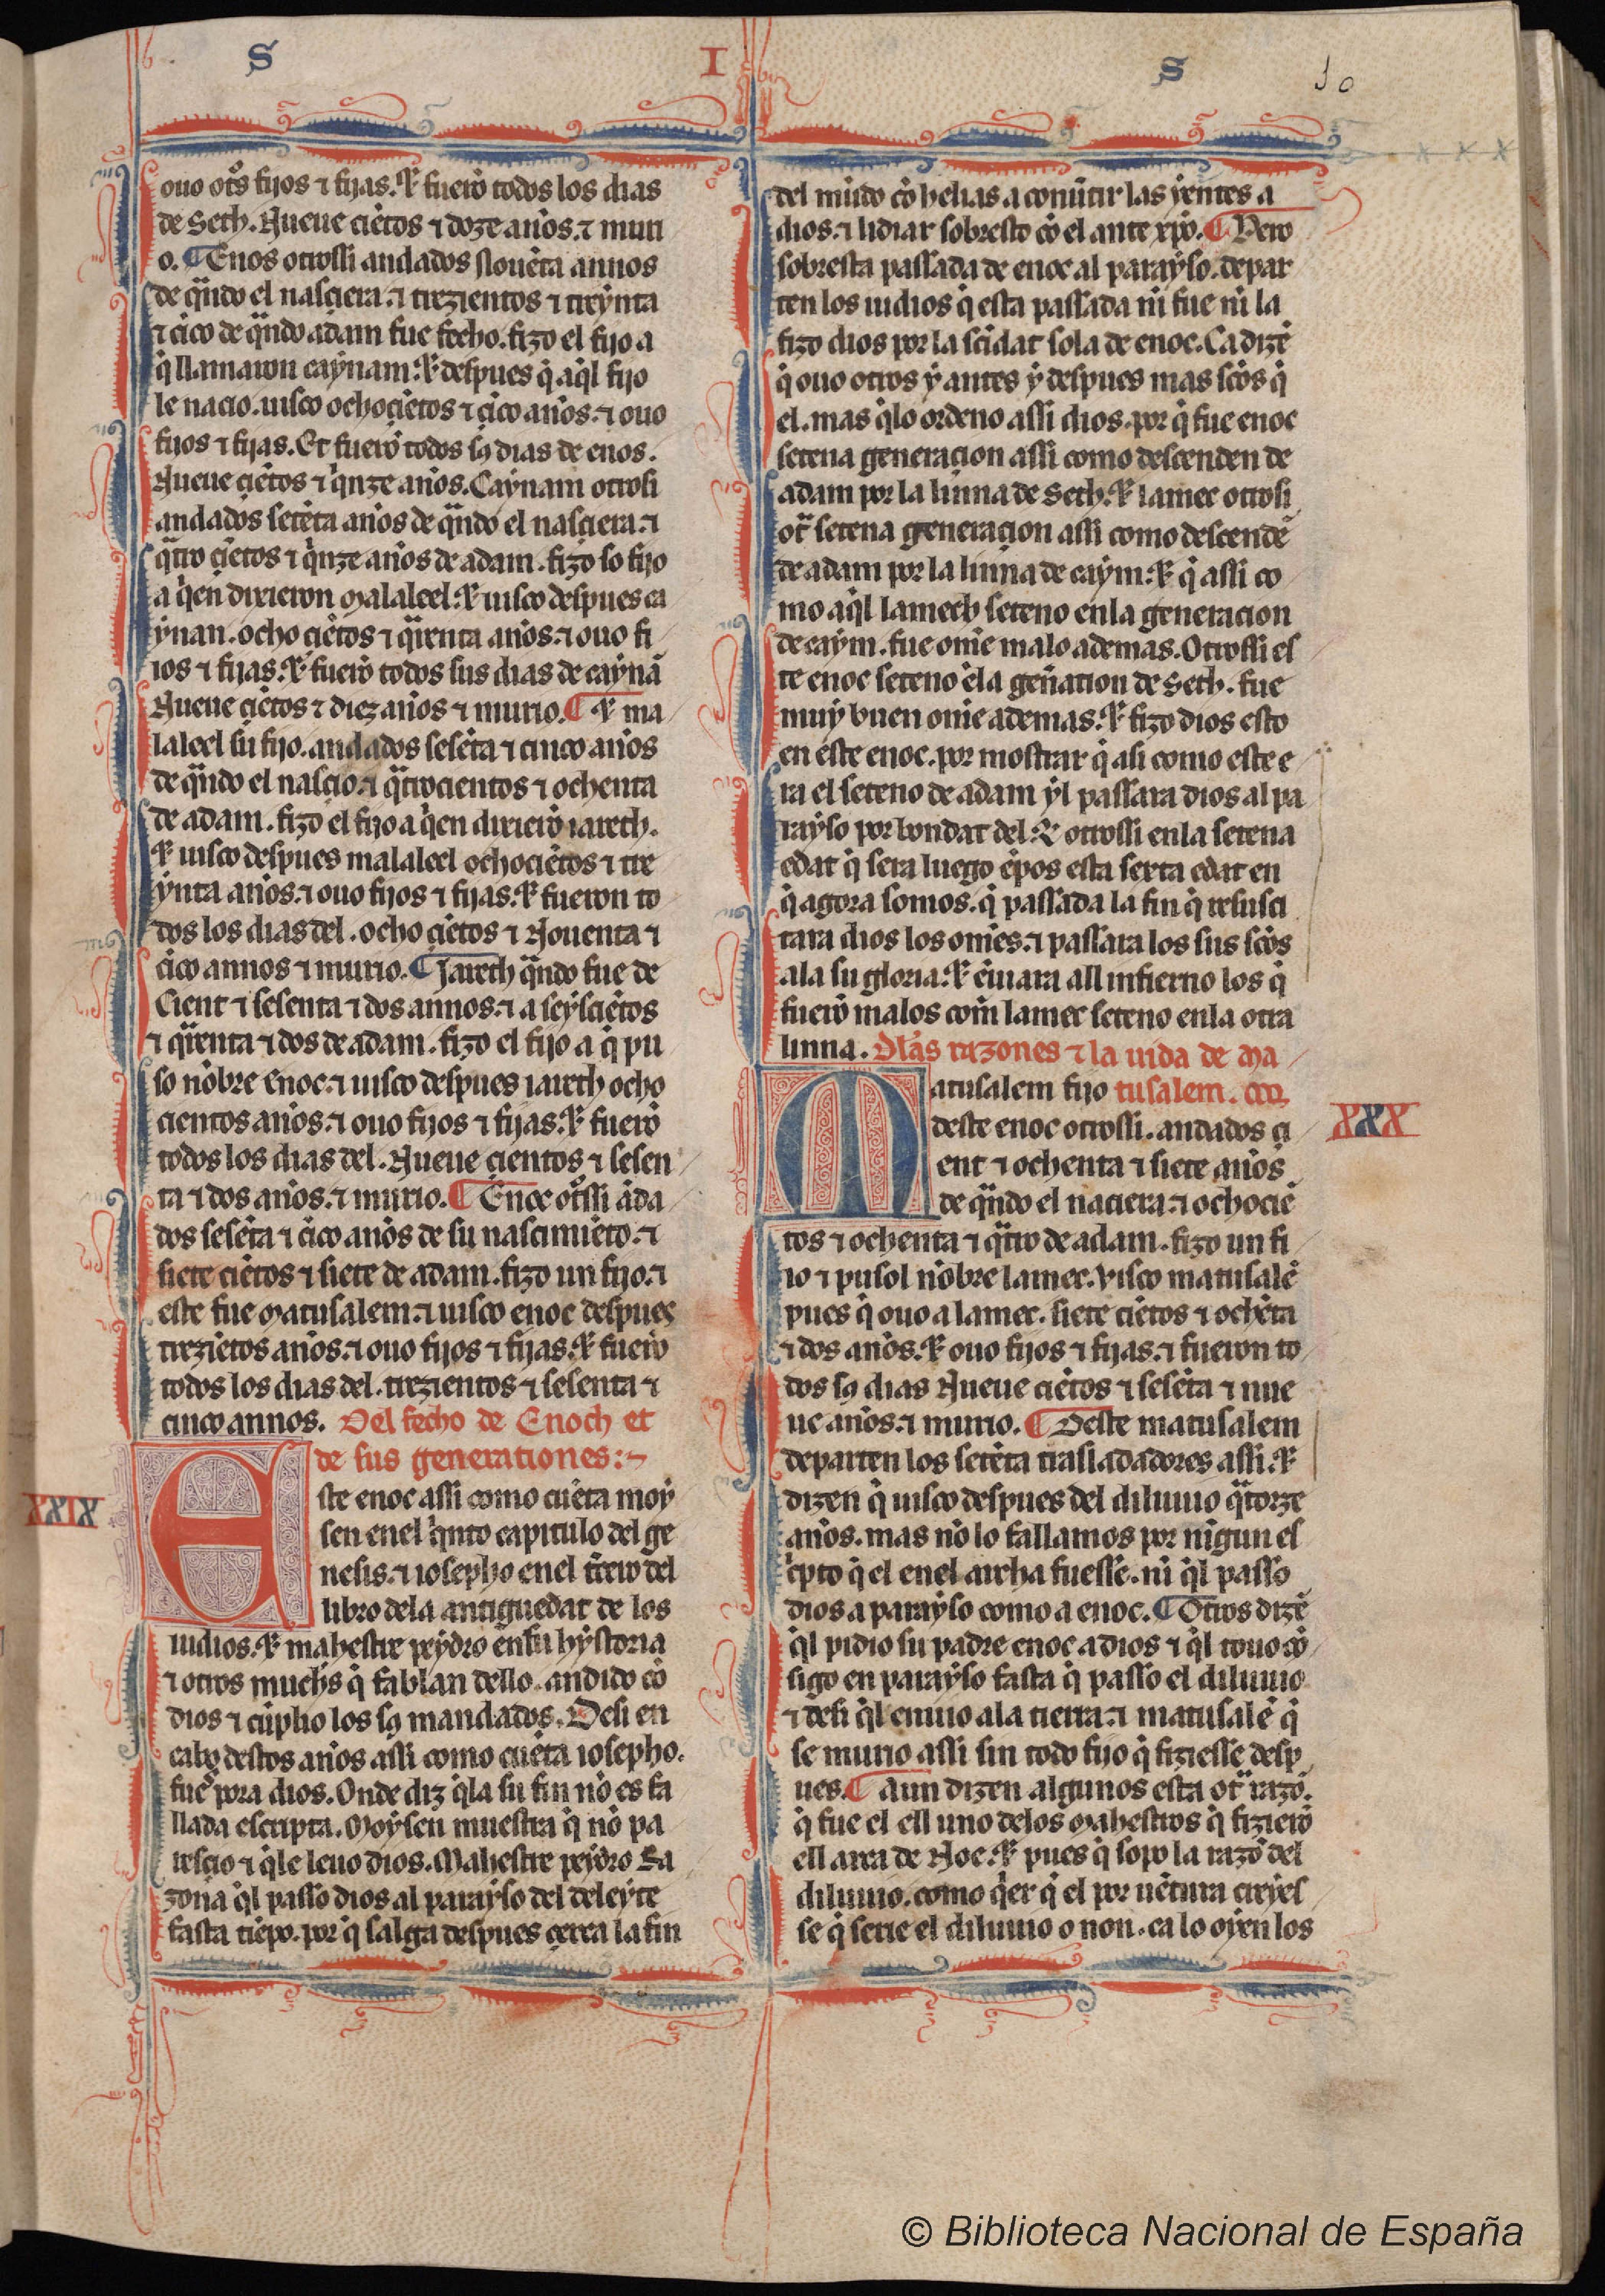 S I S
10
ouo otͦs fijos ⁊ fijas. ⁊ fuerō todos los dias
de Seth. Nueue ciētos ⁊ doze anōs. ⁊ muri
o. ¶ Enos otrossi andados nouēta annos
de qͣndo el nasçiera. ⁊ trezientos ⁊ treynta
⁊ cīco de qͣndo adam fue fecho. fizo el fijo a
q̄ llamaron caynam. ⁊ despues q̄ aq̄l fijo
le nacio. uisco ochoçiētos ⁊ çīco anōs. ⁊ ouo
fijos ⁊ fijas. Et fuerō todos sꝯ dias de enos.
Nueue çiētos ⁊ qͥnze anōs. Caynam otrosi
andados setēta anōs de qͣndo el nasçiera. ⁊
qͣtro çiētos ⁊ qͥnze anōs de adam. fizo so fijo
a qͥen dixieron malaleel. ⁊ uisco despues ca
ynan. ocho çiētos ⁊ qͣrenta anōs. ⁊ ouo fi
ios ⁊ fijas. ⁊ fuerō todos sus dias de caynā
Nueue çiētos ⁊ diez anōs ⁊ murio. ¶ ⁊ ma
laleel su fijo. andados sesēta ⁊ cinco anōs
de qͣndo el nasçio. ⁊ qͣtrocientos ⁊ ochenta
de adam. fizo el fijo a qͥen dixierō iareth.
⁊ uisco despues malaleel ochociētos ⁊ tre
ynta anōs. ⁊ ouo fijos ⁊ fijas. ⁊ fueron to
dos los dias del. ocho çiētos ⁊ Nouenta ⁊
cīco annos ⁊ murio. ¶ Jareth qͣndo fue de
Cient ⁊ sesenta ⁊ dos annos. ⁊ a seysciētos
⁊ qͣrenta ⁊ dos de adam. fizo el fijo a q̄ pu
so nōbre Enoc. ⁊ uisco despues iareth ocho
cientos anōs. ⁊ ouo fijos ⁊ fijas. ⁊ fuerō
todos los dias del. Nueue çientos ⁊ sesen
ta ⁊ dos anōs. ⁊ murio. ¶ Enoc otͦssi āda
dos sesēta ⁊ cīco anōs de su nascimiēto. ⁊
siete ciētos ⁊ siete de adam. fizo un fijo. ⁊
este fue matusalem. ⁊ uisco enoc despues
treziētos anōs. ⁊ ouo fijos ⁊ fijas. ⁊ fuerō
todos los dias del. trezientos ⁊ sesenta ⁊
cinco annos. Del fecho de Enoch et
de sus generationes:
XXIX
Este enoc assi como cuēta moy
sen enel qͥnto capitulo del ge
nesis. ⁊ iosepho enel t̄cero del
libro dela antiguedat de los
iudios. ⁊ mahestre peydro en su hystoria
⁊ otros muchͦs q̄ fablan dello. andido cō
dios ⁊ cūplio los sꝯ mandados. Desi en
cabo destos anōs assi como cuēta iosepho.
fuesͤ pora dios. Onde diz q̄la su fin nō es fa
llada escripta. Moysen muestra q̄ nō pa
rescio ⁊ q̄le leuo dios. Mahestre peydro Ra
zona q̄l passo dios al parayso del deleyte
fasta tiēpo. por q̄ salga despues çerca la fin
del mūdo cō helias a conūtir las yentes a
dios. ⁊ lidiar sobresto cō el ante xp̄o. ¶ Pero
sobresta passada de enoc al parayso. depar
ten los iudios q̄ esta passada ni fue ni la
fizo dios por la scīdat sola de enoc. Ca dizē
q̄ ouo otros y antes y despues mas scōs q̄
el. mas q̄lo ordeno assi dios. por q̄ fue enoc
setena generaçion assi como descenden de
adam por la linna de Seth. ⁊ lamec otrosi
otͣ setena generaçion assi como descendē
de adam por la linna de caym. ⁊ q̄ assi co
mo aq̄l lamech seteno enla generacion
de caym. fue om̄e malo ademas. Otrossi es
te enoc seteno ēla gen̄ation de Seth. fue
muy buen om̄e ademas. ⁊ fizo dios esto
en este enoc. por mostrar q̄ asi como este e
ra el seteno de adam yl passara dios al pa
rayso por bondat del. ⁊ otrossi enla setena
edat q̄ sera luego ēpos esta sexta edat en
q̄ agora somos. q̄ passada la fin q̄ resusci
tara dios los om̄es. ⁊ passara los sus scōs
ala su gloria. ⁊ ēuiara all infierno los q̄
fuerō malos com̄ lamec seteno enla otra
linna. Dlas razones ⁊ la uida de ma
Matusalem fijo tusalem.
XXX
deste enoc otrossi. andados çi
ent ⁊ ochenta ⁊ siete anōs
de qͣndo el naciera. ⁊ ochociē
tos ⁊ ochenta ⁊ qͣtro de adam. fizo un fi
io ⁊ pusol nōbre lamec. Visco matusalē
pues q̄ ouo a lamec. siete ciētos ⁊ ochēta
⁊ dos anōs. ⁊ ouo fijos ⁊ fijas. ⁊ fueron to
dos sꝯ dias Nueue ciētos ⁊ sesēta ⁊ nue
ue anōs. ⁊ murio. ¶ Deste matusalem
departen los setēta trasladadores assi. ⁊
dizen q̄ uisco despues del diluuio qͣtorze
anōs. mas nō lo fallamos por nīgun es
cͥpto q̄ el enel archa fuesse. ni q̄l passo
dios a parayso como a enoc. ¶ Otros dizē
q̄l pidio su padre enoc a dios ⁊ q̄l touo cō
sigo en parayso fasta q̄ passo el diluuio
⁊ desi q̄l enuio ala tierra. ⁊ matusalē q̄
se murio assi sin todo fijo q̄ fiziesse desp
ues. ¶ Aun dizen algunos esta otͣ razō.
q̄ fue el ell uno delos mahestros q̄ fizierō
ell arca de Noe. ⁊ pues q̄ sopo la razō del
diluuio. como qͥer q̄ el por uētura creyes
se q̄ serie el diluuio o non. ca lo oyen los
© Biblioteca Nacional de España